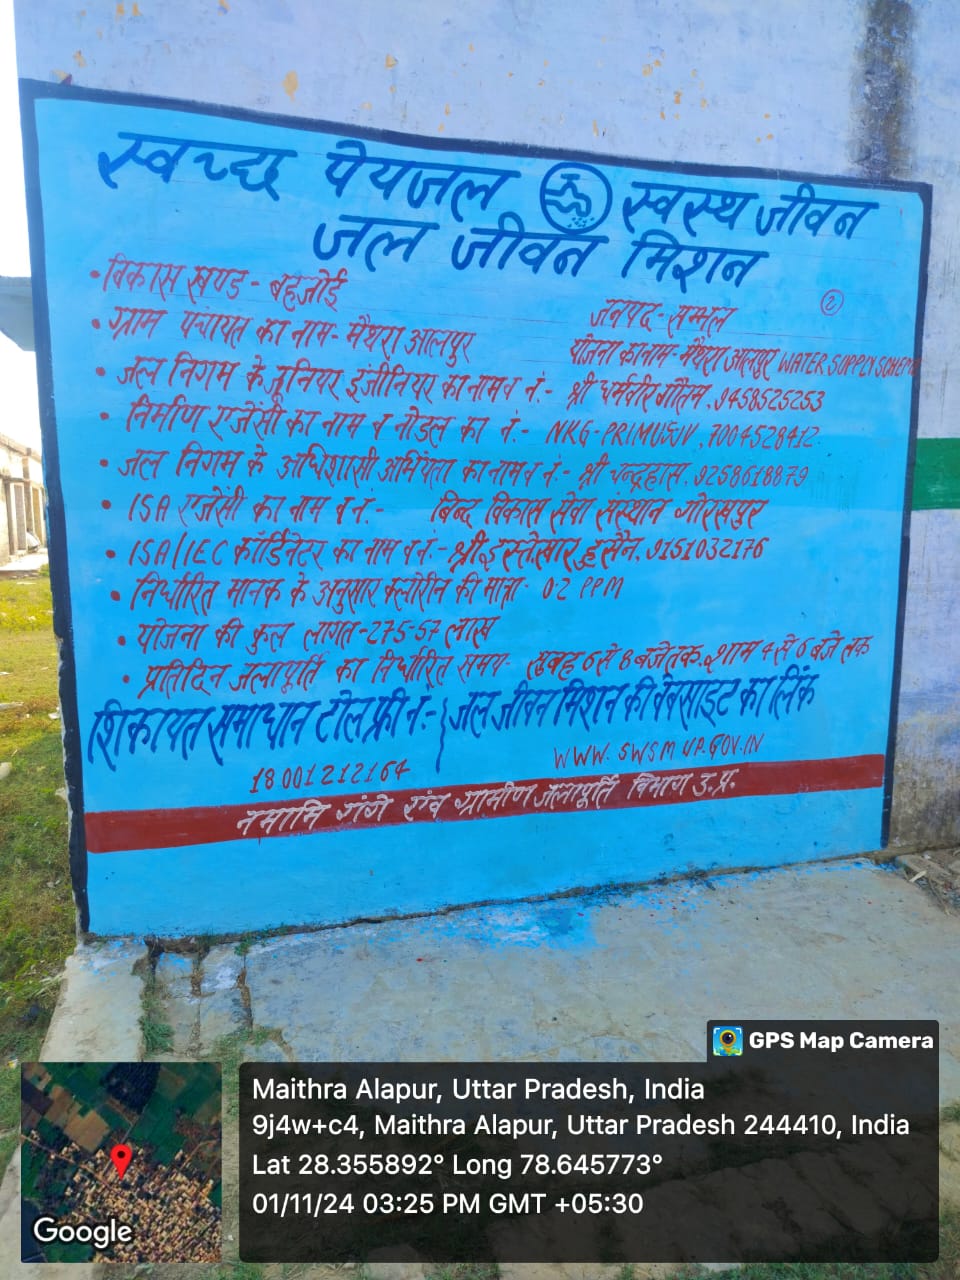 स्वच्छ पेयजल स्वस्थ जीवन
जल जीवन मिशन
• विकास खण्ड - बहजोई
जनपद - सम्भल
②
• ग्राम पंचायत का नाम - मैथरा आलपुर
योजना का नाम - मैथरा आलपुर WATER SUPPLY SCHEME
• जल निगम के जूनियर इंजीनियर का नाम व नं. - श्री धर्मवीर गौतम, 9458525253
• निर्माण एजेंसी का नाम व नोडल का नं. - NKG-PRIMUSJV, 7004528412
• जल निगम के अधिशासी अभियंता का नाम व नं. - श्री चन्द्रहास, 9258618879
• ISA एजेंसी का नाम व नं. - बिन्द विकास सेवा संस्थान गोरखपुर
• ISA/IEC कॉर्डिनेटर का नाम व नं. - श्री इस्तेखार हुसैन, 9151032176
• निर्धारित मानक के अनुसार क्लोरीन की मात्रा - 02 PPM
• योजना की कुल लागत - 275-57 लाख
• प्रतिदिन जलापूर्ति का निर्धारित समय - सुबह 6 से 8 बजे तक, शाम 4 से 6 बजे तक
शिकायत समाधान टोल फ्री नं. -
18001212164
जल जीवन मिशन की वेबसाइट का लिंक
WWW. SWSM UP.GOV.IN
नमामि गंगे एंव ग्रामीण जलापूर्ति विभाग उ.प्र.
GPS Map Camera
Maithra Alapur, Uttar Pradesh, India
9j4w+c4, Maithra Alapur, Uttar Pradesh 244410, India
Lat 28.355892° Long 78.645773°
01/11/24 03:25 PM GMT +05:30
Google